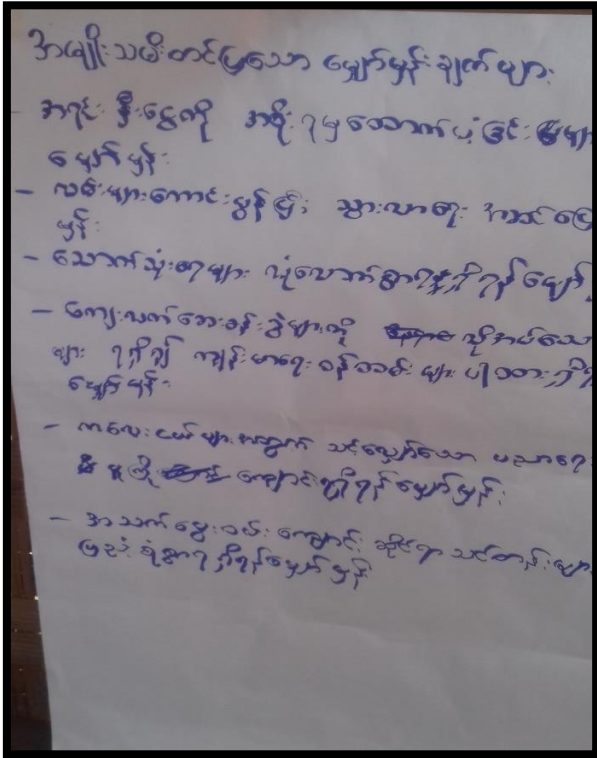 အမျိုးသမီးတင်ပြသော မျှော်မှန်းချက်များ
- အရင်းနှီးငွေကို အစိုးရမှထောက်ပံ့ခြင်းများ
မျှော်မှန်း
- လမ်းများကောင်းမွန်ပြီး သွားလာရေး အဆင်ပြေ
မှန်း
- သောက်သုံးရေများ လုံလောက်စွာရရှိရန် မျှော်
- ကျေးလက်ဆေးခန်းခွဲများကို လိုအပ်သော
များ ရရှိ၍ ကျန်းမာရေးဝန်ထမ်းများ ပါထားရှိရ
မျှော်မှန်း
- ကလေးငယ်များအတွက် သင့်လျော်သော ပညာရေး
မူကြို ကျောင်းရရှိရန်မျှော်မှန်း
- အသက်မွေးဝမ်းကျောင်း ဆိုင်ရာ သင်တန်းများ
ပြည့်စုံစွာရရှိရန်မျှော်မှန်း